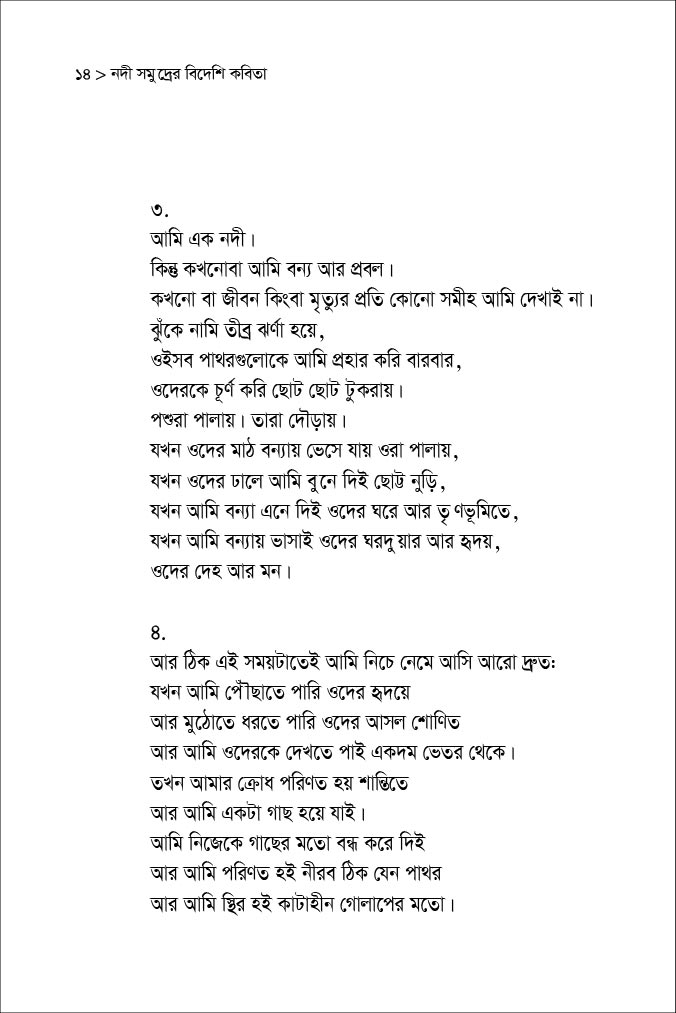 ১৪ > নদী সমুদ্রের বিদেশি কবিতা
৩.
আমি এক নদী।
কিন্তু কখনোবা আমি বন্য আর প্রবল।
কখনো বা জীবন কিংবা মৃত্যুর প্রতি কোনো সমীহ আমি দেখাই না।
ঝুঁকে নামি তীব্র ঝর্ণা হয়ে,
ওইসব পাথরগুলোকে আমি প্রহার করি বারবার,
ওদেরকে চূর্ণ করি ছোট ছোট টুকরায়।
পশুরা পালায়। তারা দৌড়ায়।
যখন ওদের মাঠ বন্যায় ভেসে যায় ওরা পালায়,
যখন ওদের ঢালে আমি বুনে দিই ছোট্ট নুড়ি,
যখন আমি বন্যা এনে দিই ওদের ঘরে আর তৃণভূমিতে,
যখন আমি বন্যায় ভাসাই ওদের ঘরদুয়ার আর হৃদয়,
ওদের দেহ আর মন।
৪.
আর ঠিক এই সময়টাতেই আমি নিচে নেমে আসি আরো দ্রুত:
যখন আমি পৌঁছাতে পারি ওদের হৃদয়ে
আর মুঠোতে ধরতে পারি ওদের আসল শোণিত
আর আমি ওদেরকে দেখতে পাই একদম ভেতর থেকে।
তখন আমার ক্রোধ পরিণত হয় শান্তিতে
আর আমি একটা গাছ হয়ে যাই।
আমি নিজেকে গাছের মতো বন্ধ করে দিই
আর আমি পরিণত হই নীরব ঠিক যেন পাথর
আর আমি স্থির হই কাটাহীন গোলাপের মতো।